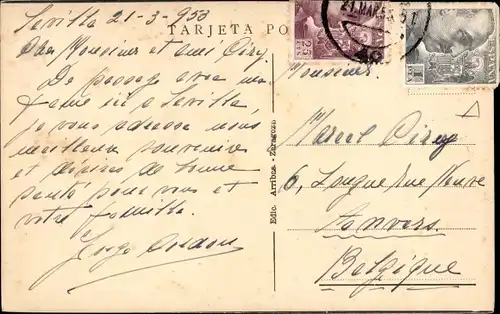 Sevilla 21-3-953
TARJETA PO
Cher Monsieur et ami Oiry.
De passage avec ma
femme ici à Sevilla,
je vous adresse nous
meilleurs souvenirs
et désirs de bonne
santé pour vous et
votre famille.
Jorge
Edic. Arribas - Zaragoza
21.MAR.5
Monsieur
Marcel Oiry
6, Longue rue Neuve
Anvers.
Belgique